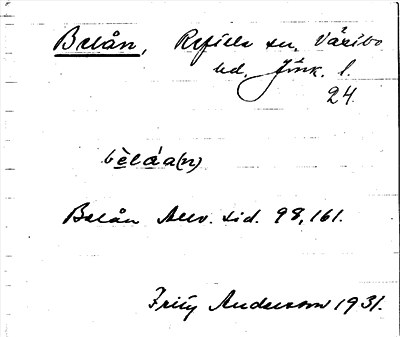 Belån, Refiele sn. Våxibo
hd. Jönk. l.
24.
bèláa(n)
Belån Allv. sid. 98, 161.
Fritz Anderson 1931.